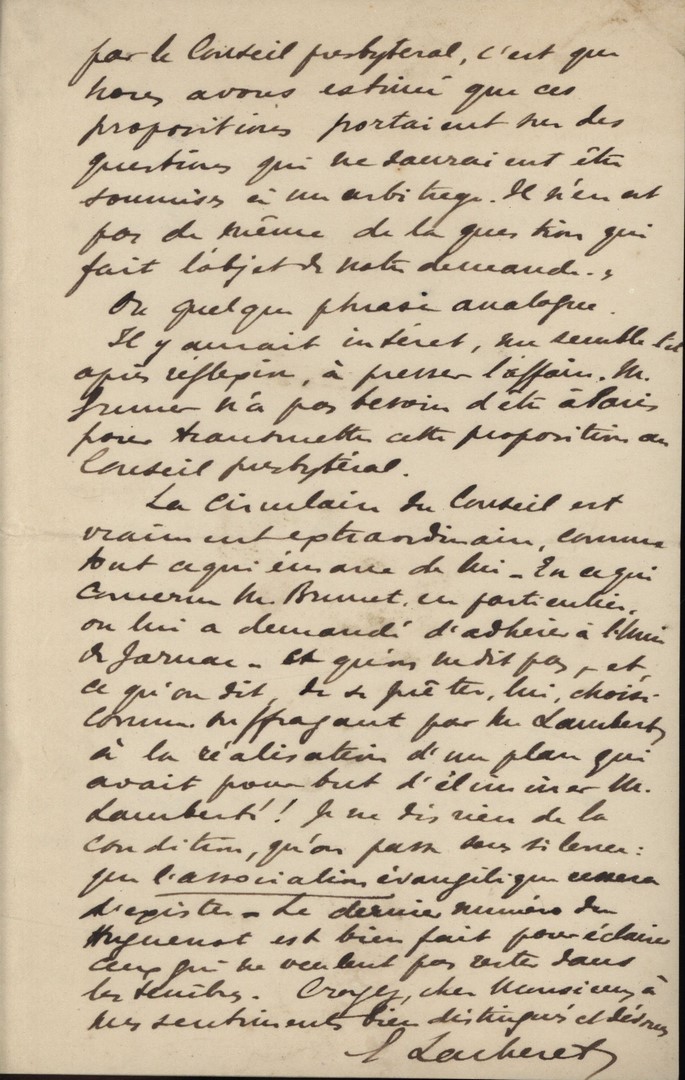 par le Conseil presbytéral, c'est que
nous avons estimé que ces
propositions portaient sur des
questions qui ne sauraient être
soumises à un arbitrage. Il n'en est
pas de même de la question qui
fait l'objet de notre demande. »
Ou quelque phrase analogue.
Il y aurait intérêt, me semble t'il
après réflexion, à presser l'affaire. M.
n'a pas besoin d'être à Paris
pour transmettre cette proposition au
Conseil presbytéral.
La circulaire du Conseil est
vraiment extraordinaire, comme
tout ce qui émane de lui – En ce qui
concerne M. Brunet, en particulier,
on lui a demandé d'adhérer à l'Union
de Jarnac – et qu'on ne dit pas, – et
ce qu'on dit, de se prêter, lui, choisi
comme suffragant par M. Lambert,
à la réalisation d'un plan qui
avait pour but d'éliminer M.
Lambert! Je ne dis rien de la
condition, qu'on passe sous silence:
que l'association évangélique cessera
d'exister – Le dernier numéro du
Huguenot est bien fait pour éclairer
ceux qui ne veulent pas rester dans
les ténèbres. Croyez, cher Monsieur, à
mes sentiments bien distingués et dévoués
E Lacheret